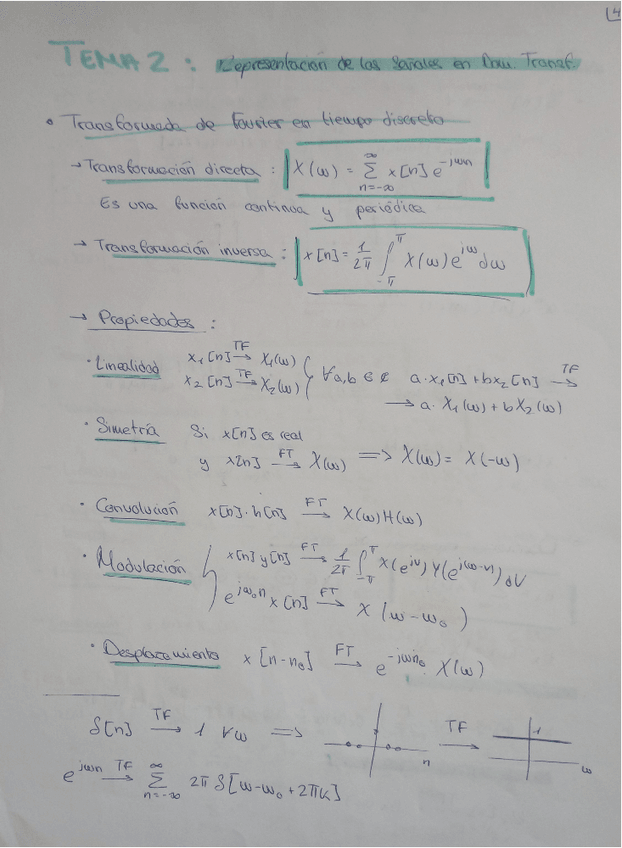 4
TEMA 2 : Representación de las Señales en Dom. Transf.
• Transformada de Fourier en tiempo discreto
→ Transformación directa : X(ω) = ∑_{n=-∞}^{∞} x[n] e^{-jωn}
Es una función continua y periódica
→ Transformación inversa : x[n] = 1/2π ∫_{-π}^{π} X(ω) e^{jω} dω
→ Propiedades :
· Linealidad x₁[n] →^{TF} X₁(ω) } ∀a,b ∈ ¢ a·x₁[n] + bx₂[n] →^{TF}
x₂[n] →^{TF} X₂(ω) → a·X₁(ω) + bX₂(ω)
· Simetría Si x[n] es real
y x[n] →^{FT} X(ω) => X(ω) = X(-ω)
· Convolución x[n]·h[n] →^{FT} X(ω)H(ω)
· Modulación { x[n]y[n] →^{FT} 1/2π ∫_{-π}^{π} X(e^{jv}) Y(e^{j(ω-v)}) dV
e^{jω₀n} x[n] →^{FT} X(ω-ω₀)
· Desplazamiento x[n-n₀] →^{FT} e^{-jωn₀} X(ω)
δ[n] →^{TF} 1 ∀ω => n →^{TF} 1 ω
e^{jωn} →^{TF} ∑_{n=-∞}^{∞} 2π δ[ω-ω₀+2πk]